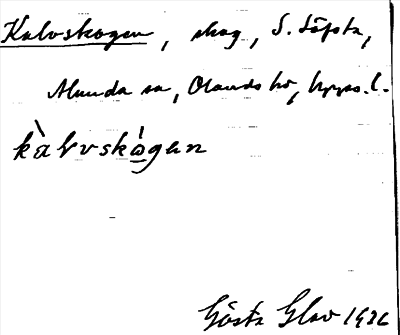 Kalvskogen, skog, S. Löfsta,
Alunda sn, Olands hd, Upps. l.
kàlvskógan
Gösta Glav 1936